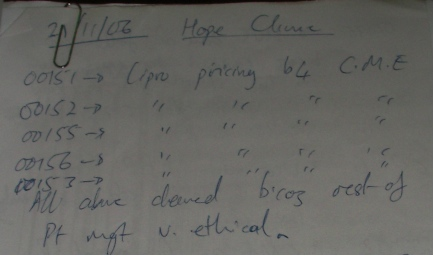 2 /11/06 Hope Clinic
00151→ Cipro pricing b4 C.M.E
00152→ " " " "
00155→ " " " "
00156→ " " " "
00153→ " " " "
All above cleared b'coz rest of
Pt mgt v. ethical.